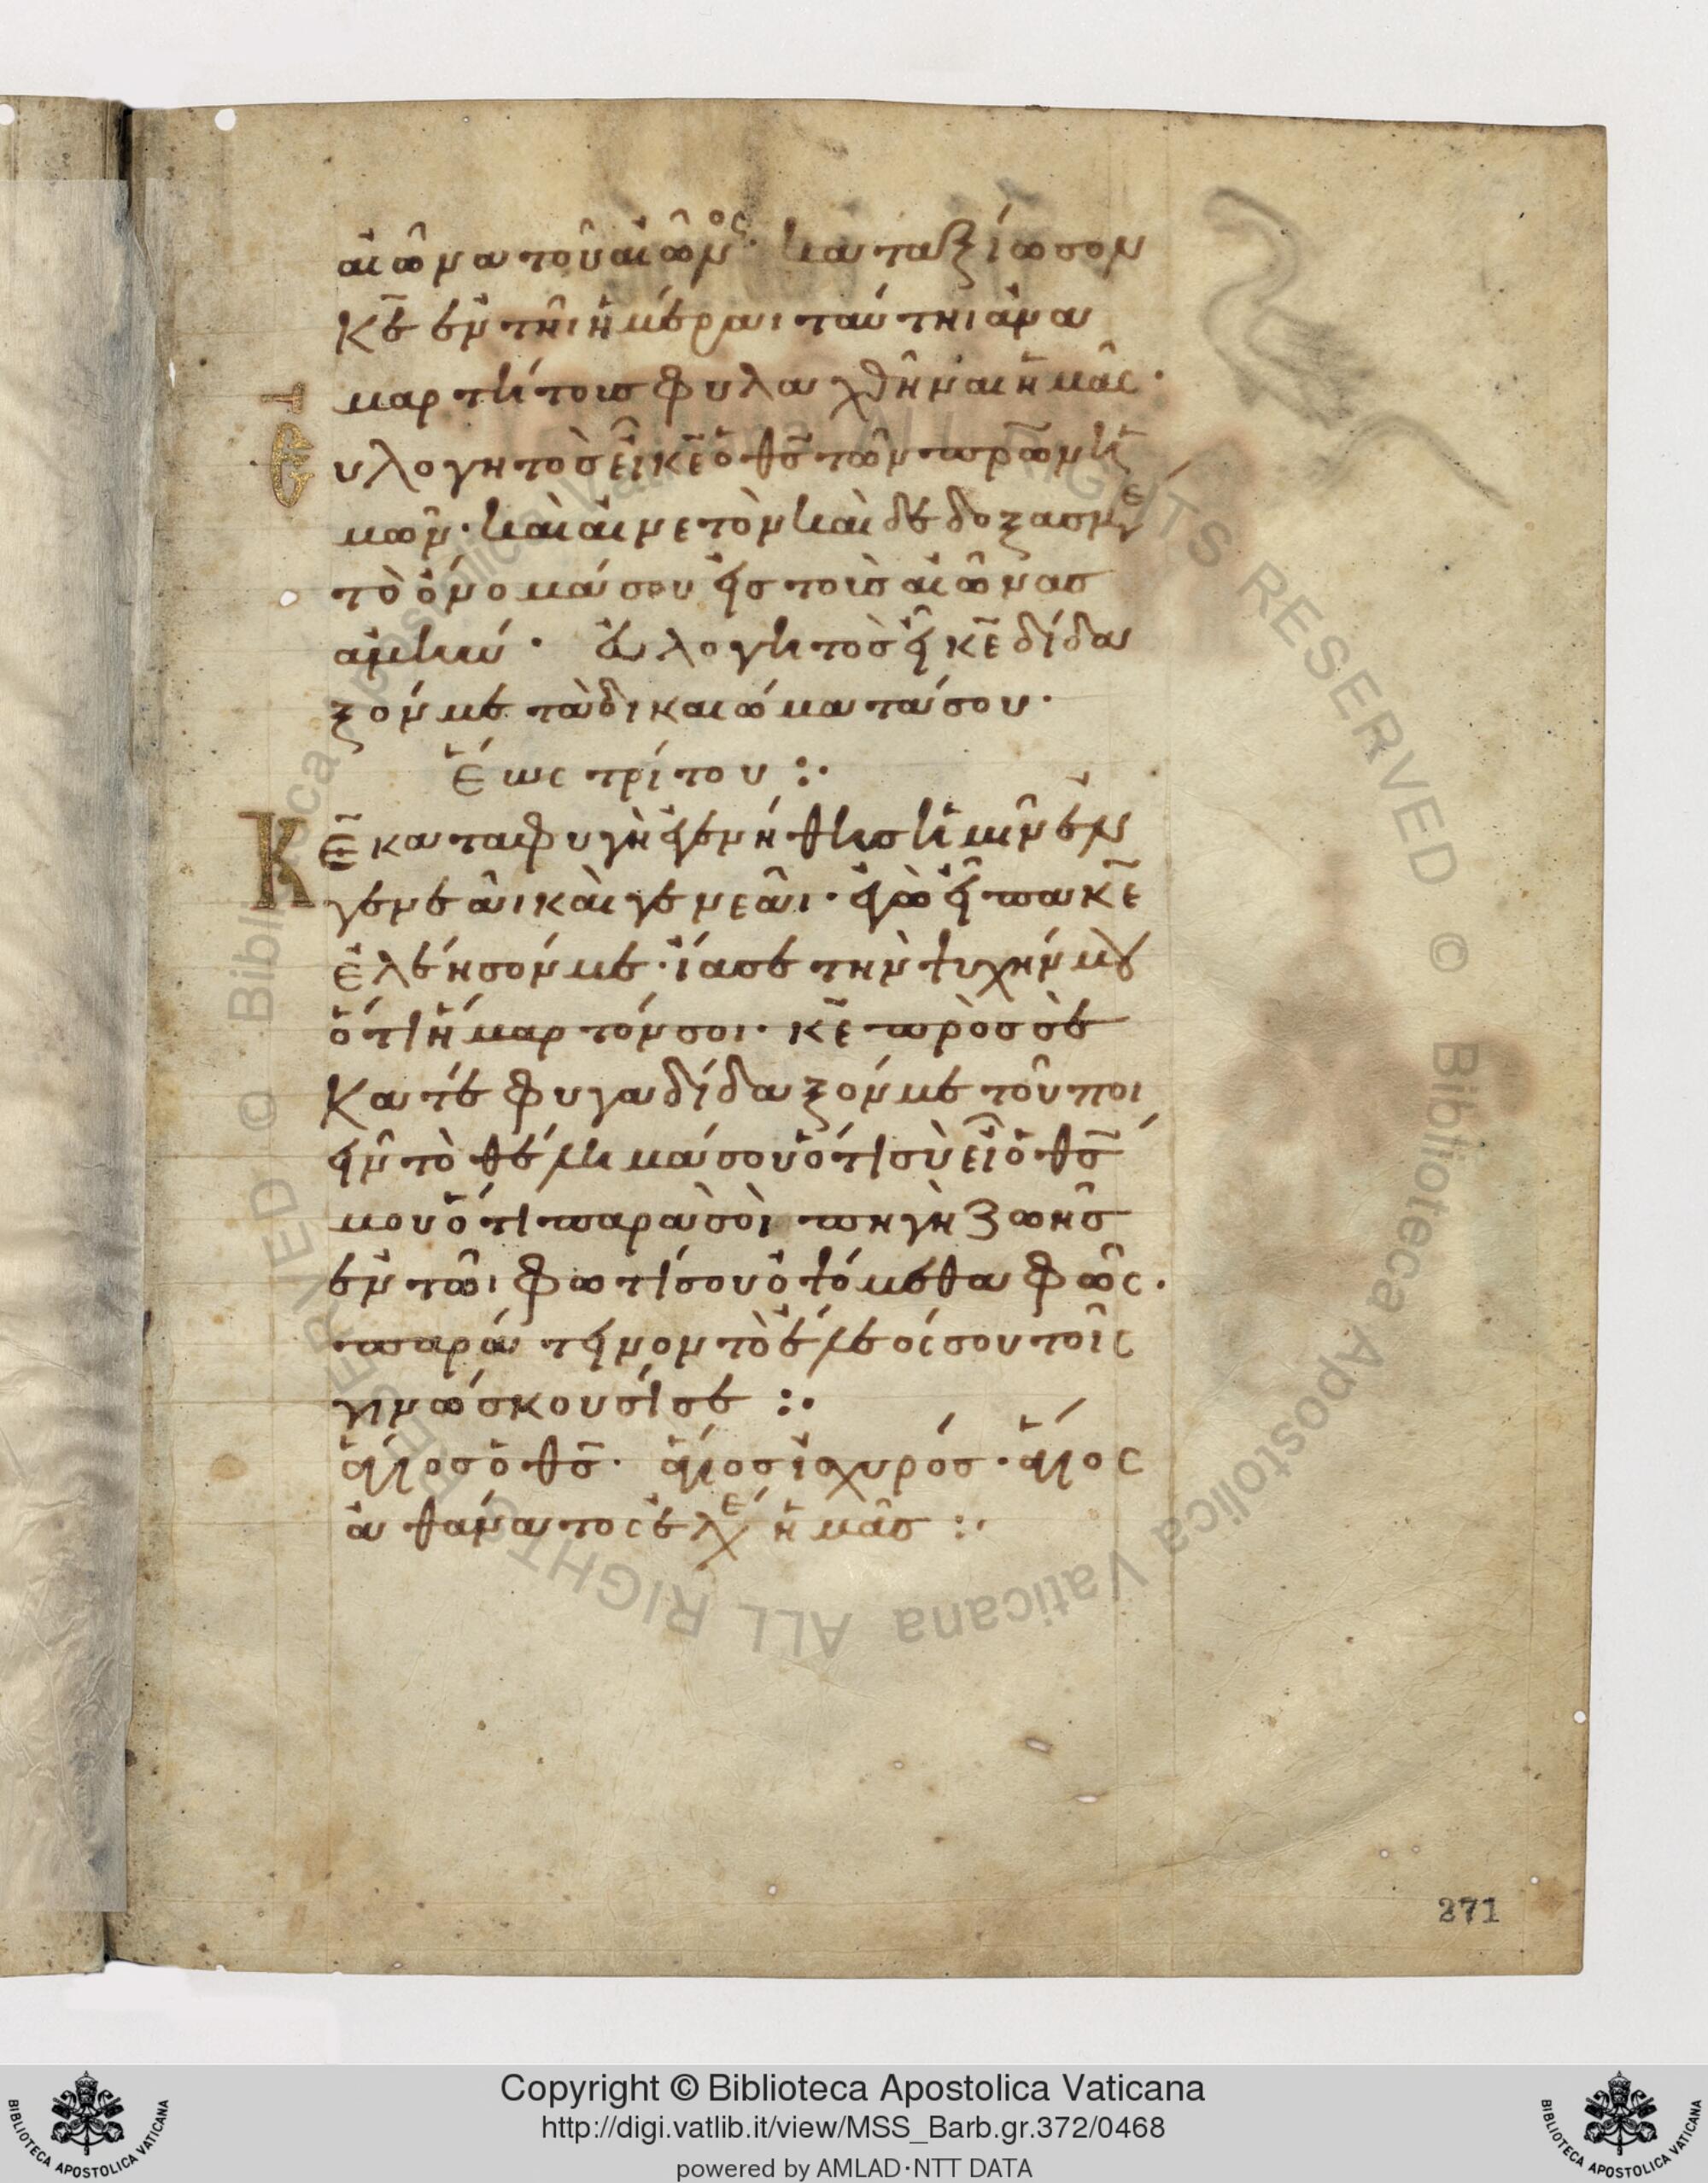 αἰῶνα τοῦ αἰῶνος· καταξίωσον
κ̅ε̅ ἐν τῆι ἡμέραι ταύτηι ἀνα
μαρτήτους φυλαχθῆναι ἡμᾶς·
Εὐλογητὸς εἶ κ̅ε̅ ὁ θ̅ς̅ τῶν π̅ρ̅ω̅ν ἡ
μῶν· καὶ αἰνετὸν καὶ δεδοξασμέ
τὸ ὄνομά σου εἰς τοὺς αἰῶνας
ἀμήν· εὐλογητὸς εἶ κ̅ε̅ δίδα
ξόν με τὰ δικαιώματά σου·
Ἕως τρίτου :·
Κ̅ε̅ καταφυγὴ ἐγενήθης ἡμῖν ἐν
γενεᾶι καὶ γενεᾶι· ἐγὼ εἶπα κ̅ε̅
ἐλέησόν με· ἴασε τὴν ψυχήν μου
ὅτι ἥμαρτόν σοι· κ̅ε̅ πρὸς σὲ
κατέφυγα δίδαξόν με τοῦ ποι
εῖν τὸ θέλημά σου ὅτι σὺ εἶ ὁ θ̅ς̅
μου ὅτι παρὰ σοὶ πηγὴ ζωῆς
ἐν τῶι φωτί σου ὀψόμεθα φῶς·
παράτεινον τὸ ἔλεός σου τοῖς
γινώσκουσί σε :·
ἅγιος ὁ θ̅ς̅· ἅγιος ἰσχυρός· ἅγιος
ἀθάνατος ἐλέ ἡμᾶς :·
271
© Biblioteca Apostolica Vaticana ALL RIGHTS RESERVED © Biblioteca Apostolica Vaticana ALL RIGHTS RESERVED
BIBLIOTECA APOSTOLICA VATICANA
Copyright © Biblioteca Apostolica Vaticana
http://digi.vatlib.it/view/MSS_Barb.gr.372/0468
powered by AMLAD·NTT DATA
BIBLIOTECA APOSTOLICA VATICANA